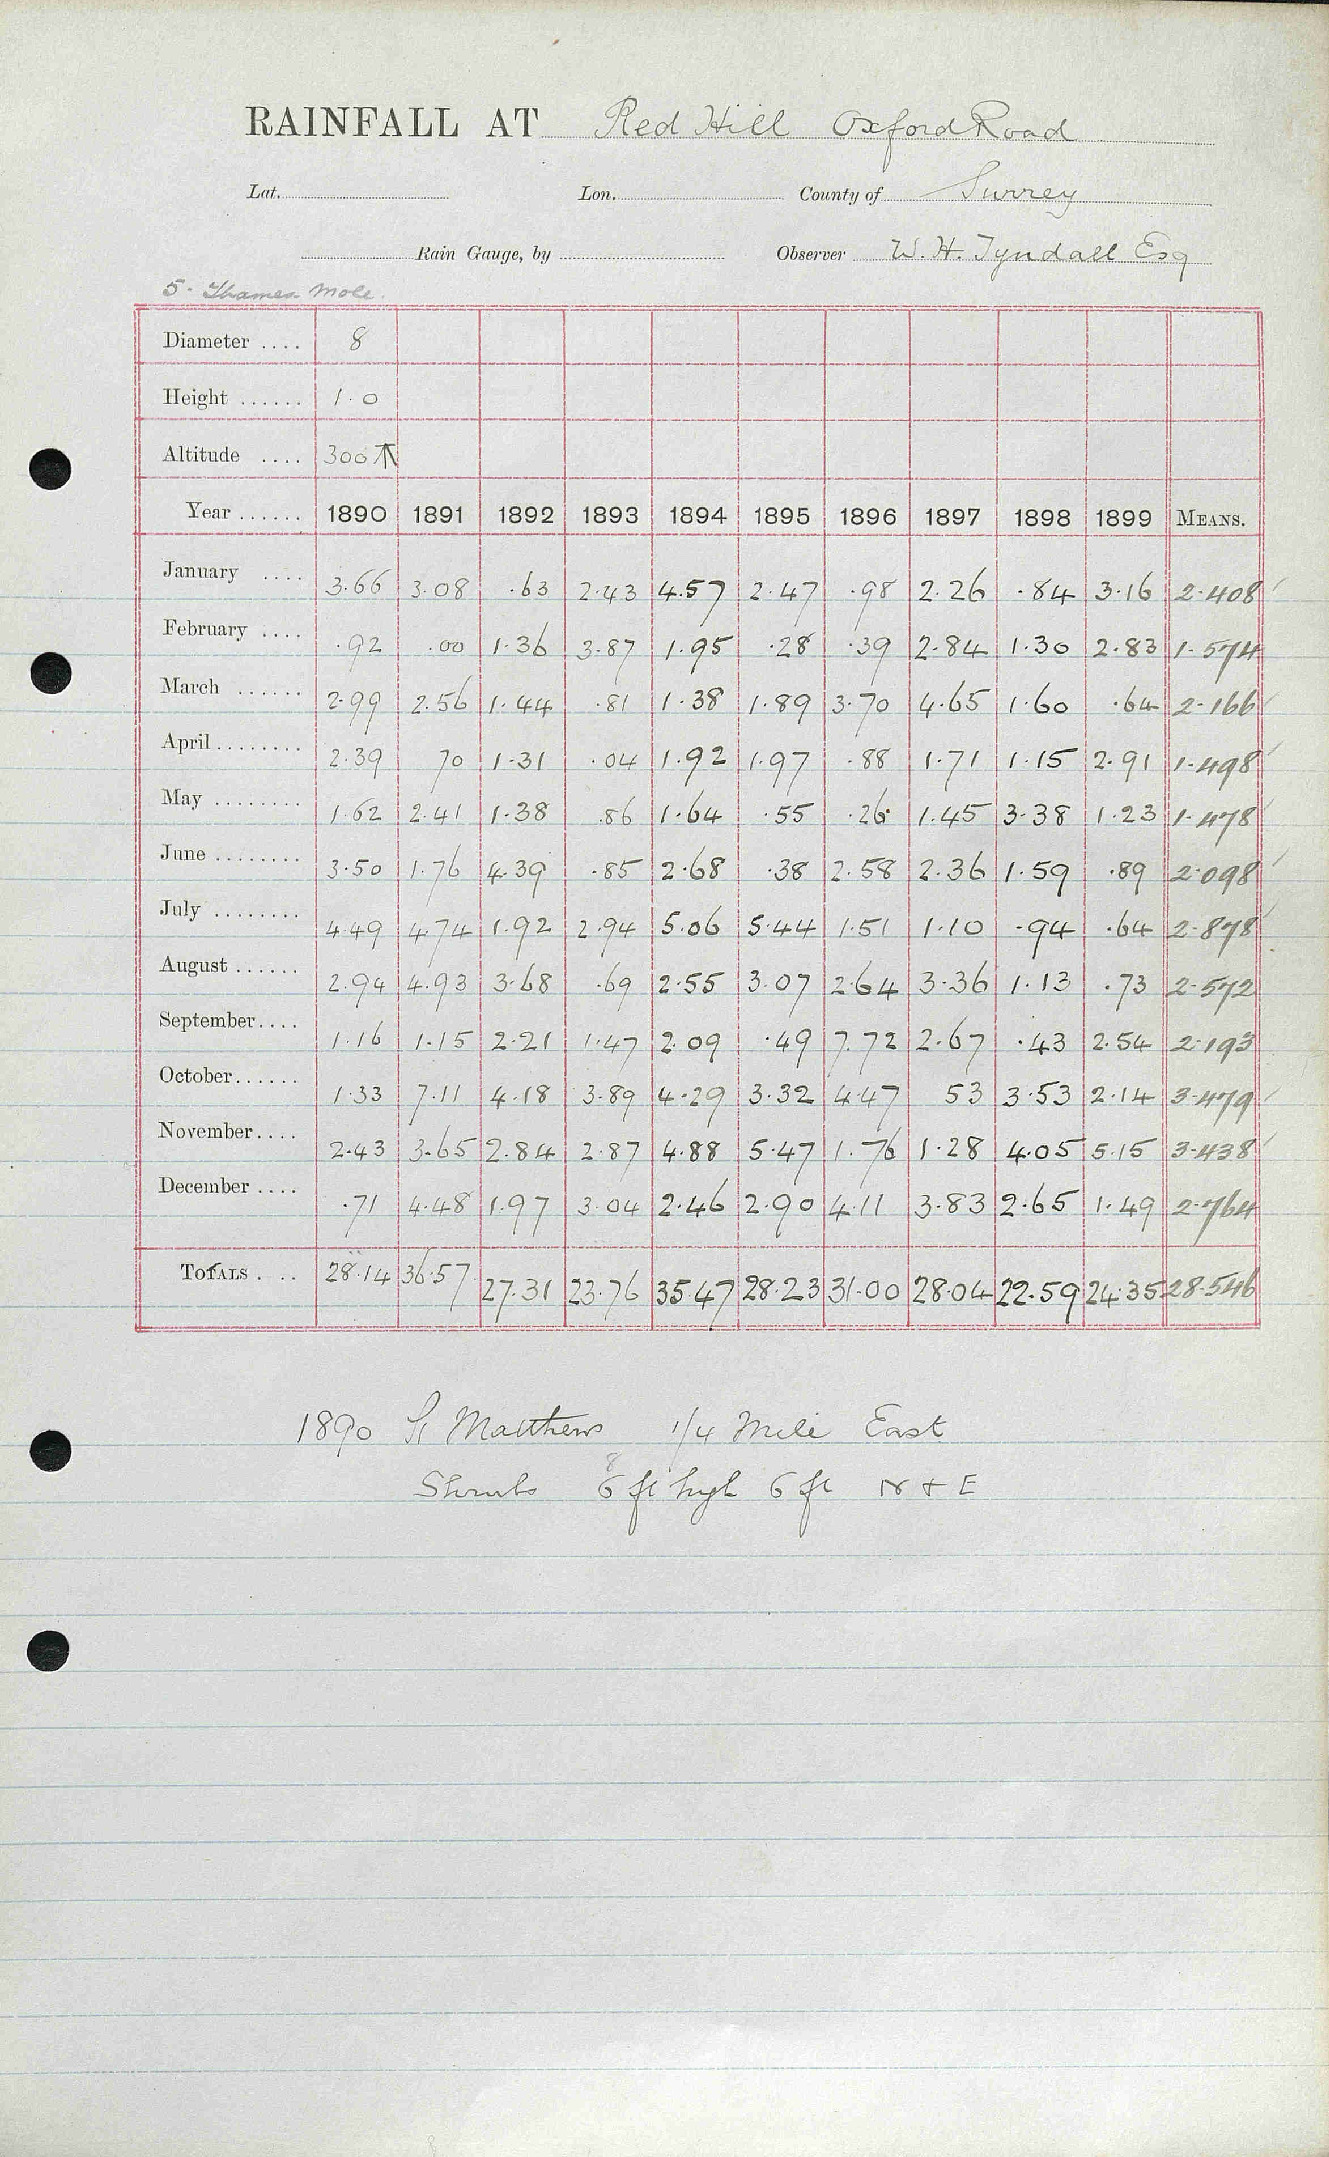 RAINFALL AT Red Hill Oxford Road
Lat. Lon. County of Surrey
Rain Gauge, by Observer W. H. Tyndall Esq
5. Thames Mole.
Diameter .... 8
Height ...... 1.0
Altitude .... 300 T
Year ...... 1890 1891 1892 1893 1894 1895 1896 1897 1898 1899 MEANS.
January .... 3.66 3.08 .63 2.43 4.57 2.47 .98 2.26 .84 3.16 2.408
February .... .92 .00 1.36 3.87 1.95 .28 .39 2.84 1.30 2.83 1.574
March ...... 2.99 2.56 1.44 .81 1.38 1.89 3.70 4.65 1.60 .64 2.166
April ........ 2.39 70 1.31 .04 1.92 1.97 .88 1.71 1.15 2.91 1.498
May ........ 1.62 2.41 1.38 .86 1.64 .55 .26 1.45 3.38 1.23 1.478
June ........ 3.50 1.76 4.39 .85 2.68 .38 2.58 2.36 1.59 .89 2.098
July ........ 4.49 4.74 1.92 2.94 5.06 5.44 1.51 1.10 .94 .64 2.878
August ...... 2.94 4.93 3.68 .69 2.55 3.07 2.64 3.36 1.13 .73 2.572
September .... 1.16 1.15 2.21 1.47 2.09 .49 7.72 2.67 .43 2.54 2.193
October ...... 1.33 7.11 4.18 3.89 4.29 3.32 4.47 53 3.53 2.14 3.479
November .... 2.43 3.65 2.84 2.87 4.88 5.47 1.76 1.28 4.05 5.15 3.438
December .... .71 4.48 1.97 3.04 2.46 2.90 4.11 3.83 2.65 1.49 2.764
TOTALS . .. 28.14 36.57 27.31 23.76 35.47 28.23 31.00 28.04 22.59 24.35 28.546
1890 St Matthews 1/4 Mile East
8
Shrubs 6 ft high 6 ft N + E